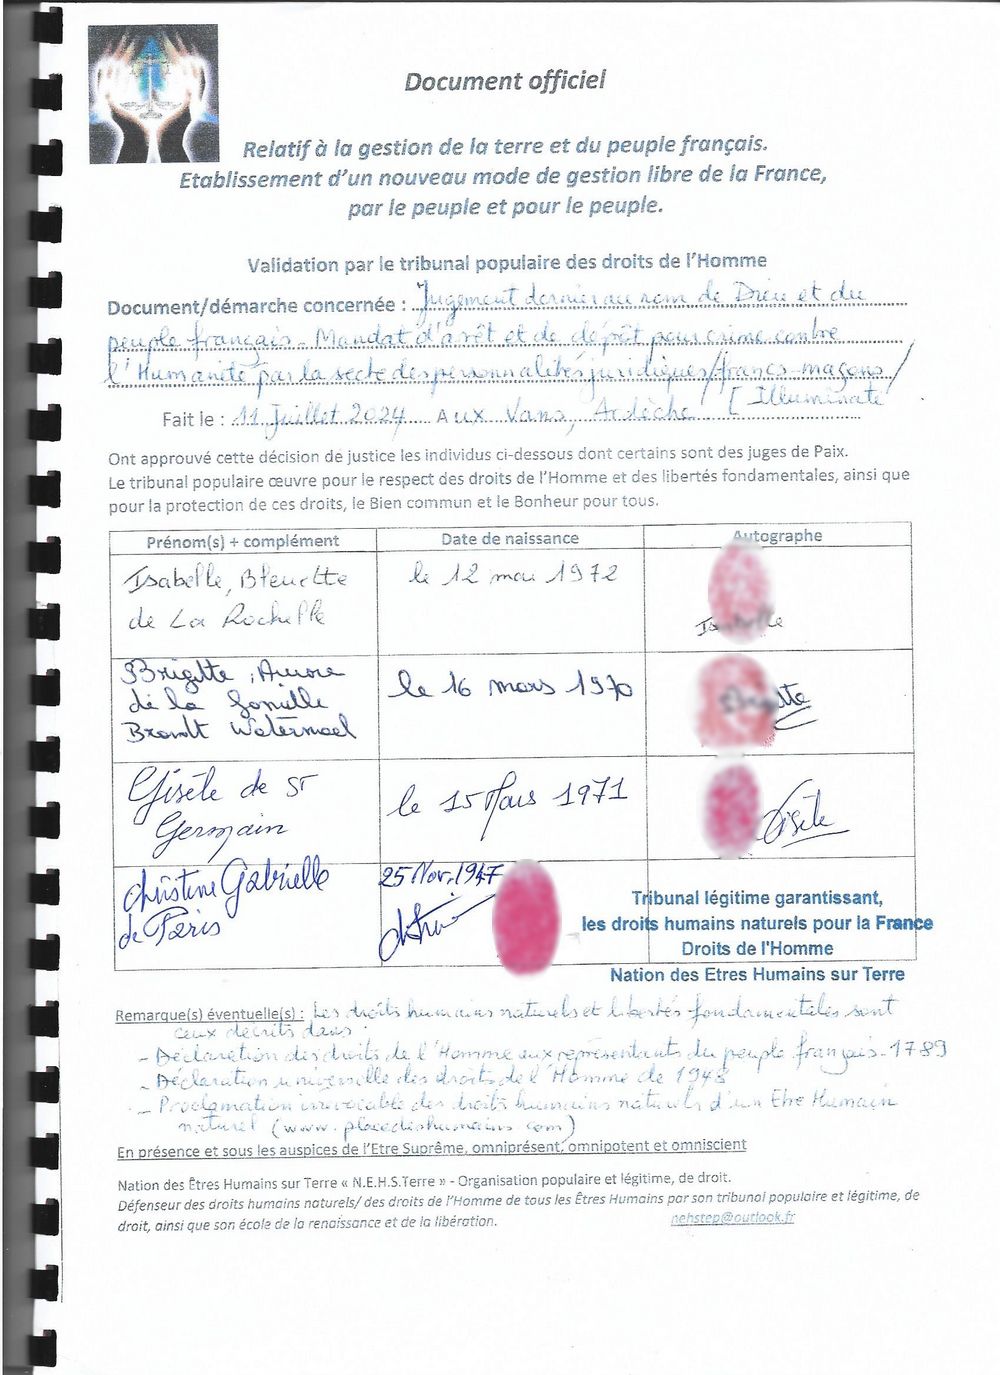 Document officiel
Relatif à la gestion de la terre et du peuple français.
Etablissement d'un nouveau mode de gestion libre de la France,
par le peuple et pour le peuple.
Validation par le tribunal populaire des droits de l'Homme
Document/démarche concernée : Jugement dernier au nom de Dieu et du
peuple français - Mandat d'arrêt et de dépôt pour crime contre
l'Humanité par la secte des personnalités juridiques/francs-maçons/
Fait le : 11 Juillet 2024 Aux Vans, Ardèche. [Illuminate
Ont approuvé cette décision de justice les individus ci-dessous dont certains sont des juges de Paix.
Le tribunal populaire œuvre pour le respect des droits de l'Homme et des libertés fondamentales, ainsi que
pour la protection de ces droits, le Bien commun et le Bonheur pour tous.
Prénom(s) + complément Date de naissance Autographe
Isabelle, Bleuette le 12 mai 1972
de La Rochelle Isabelle
Brigitte, Aurore
de la famille le 16 mars 1970 Brigitte
Brandt Watermael
Gisèle de St le 15 Mars 1971 Gisèle
Germain
Christine Gabrielle 25 Nov. 1947
de Paris
Tribunal légitime garantissant,
les droits humains naturels pour la France
Droits de l'Homme
Nation des Etres Humains sur Terre
Remarque(s) éventuelle(s) : Les droits humains naturels et libertés fondamentales sont
ceux décrits dans :
- Déclaration des droits de l'Homme aux représentants du peuple français - 1789
- Déclaration universelle des droits de l'Homme de 1948
- Proclamation irrévocable des droits humains naturels d'un Etre Humain
naturel (www.placedeshumains.com)
En présence et sous les auspices de l'Etre Suprême, omniprésent, omnipotent et omniscient
Nation des Êtres Humains sur Terre « N.E.H.S.Terre » - Organisation populaire et légitime, de droit.
Défenseur des droits humains naturels/ des droits de l'Homme de tous les Êtres Humains par son tribunal populaire et légitime, de
droit, ainsi que son école de la renaissance et de la libération. nehstep@outlook.fr